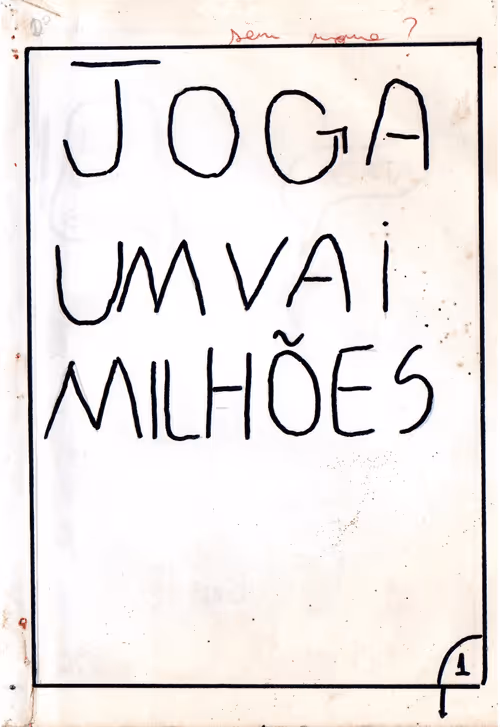 sem nome?
JOGA
UM VAI
MILHÕES
1